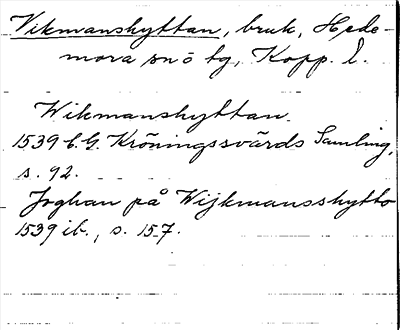 Vikmanshyttan, bruk, Hede-
mora sn o tg, Kopp. l.
Wikmanshyttan
1539 C.G. Kröningssvärds Samling,
s. 92.
Joghan på Wijkmansshytto
1539 ib., s. 157.